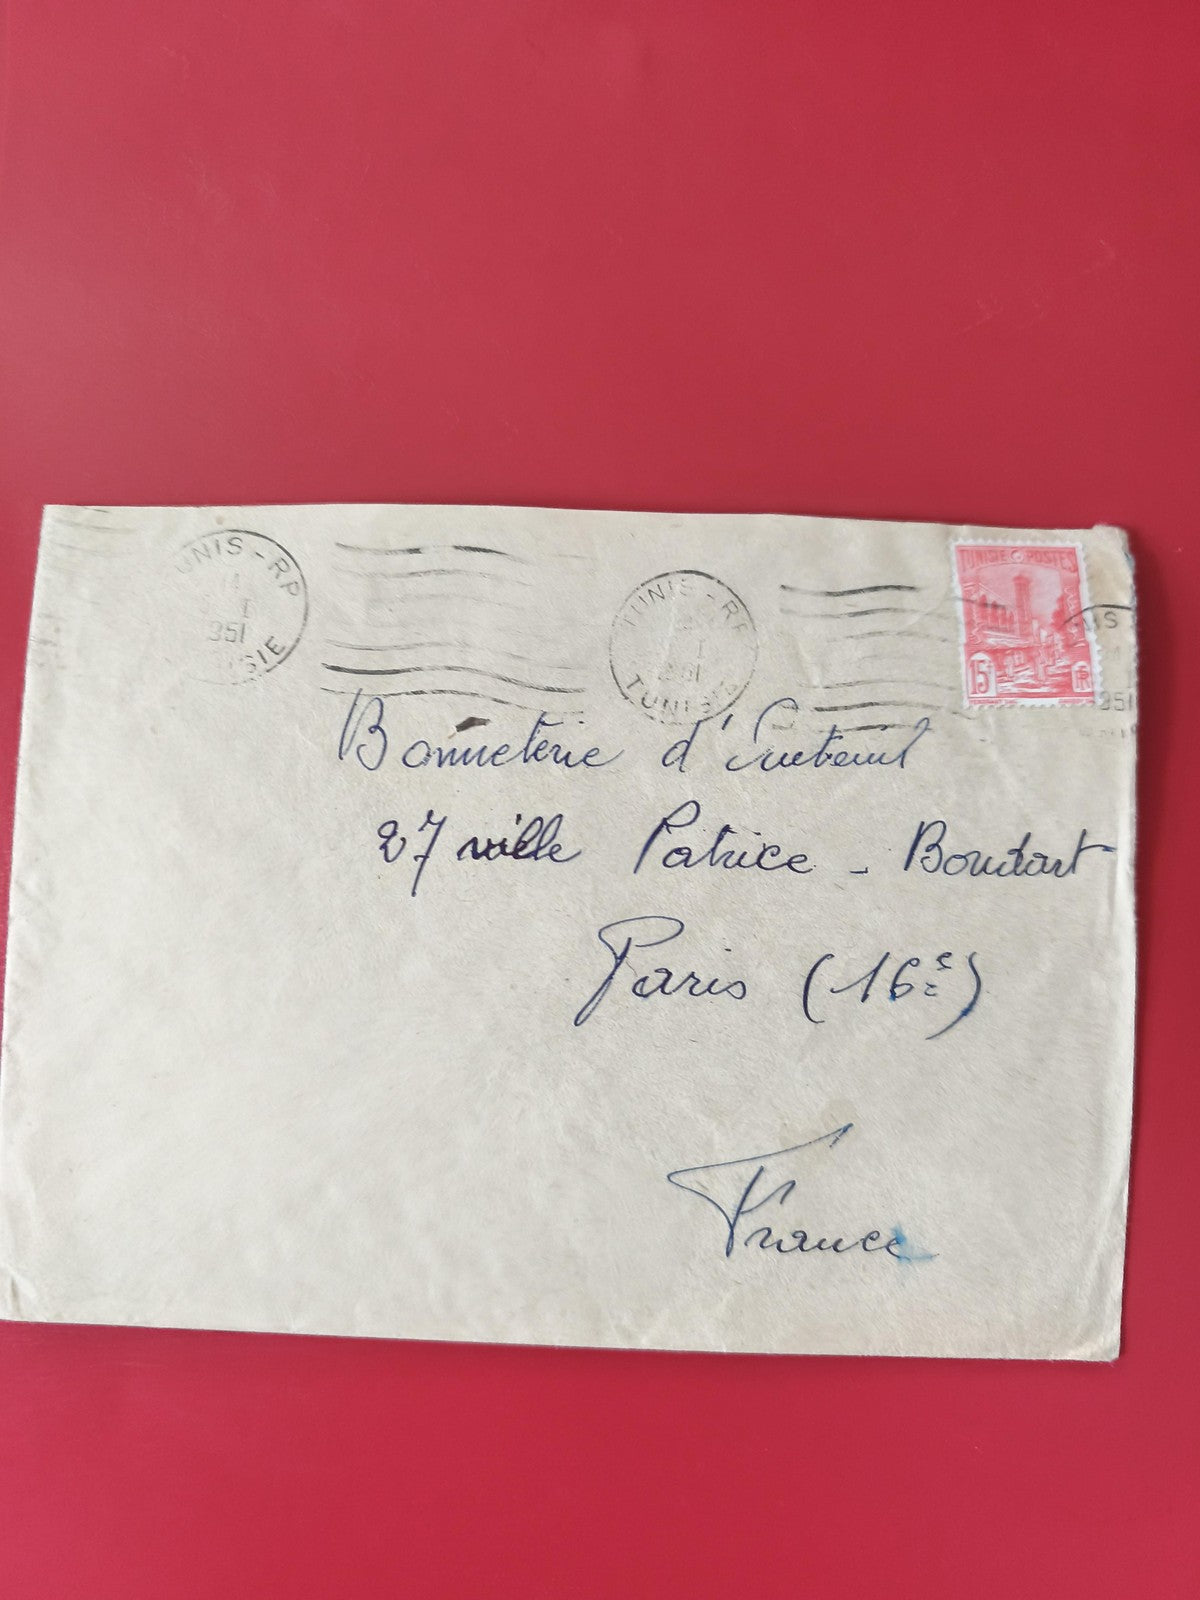 UNIS - RP
I
951
ISIE
TUNIS - R P
TUNIS
TUNISIE POSTES
15F
RF
IS
951
Bonneterie d'Auteuil
27 ville Patrice - Boudart
Paris (16e)
France